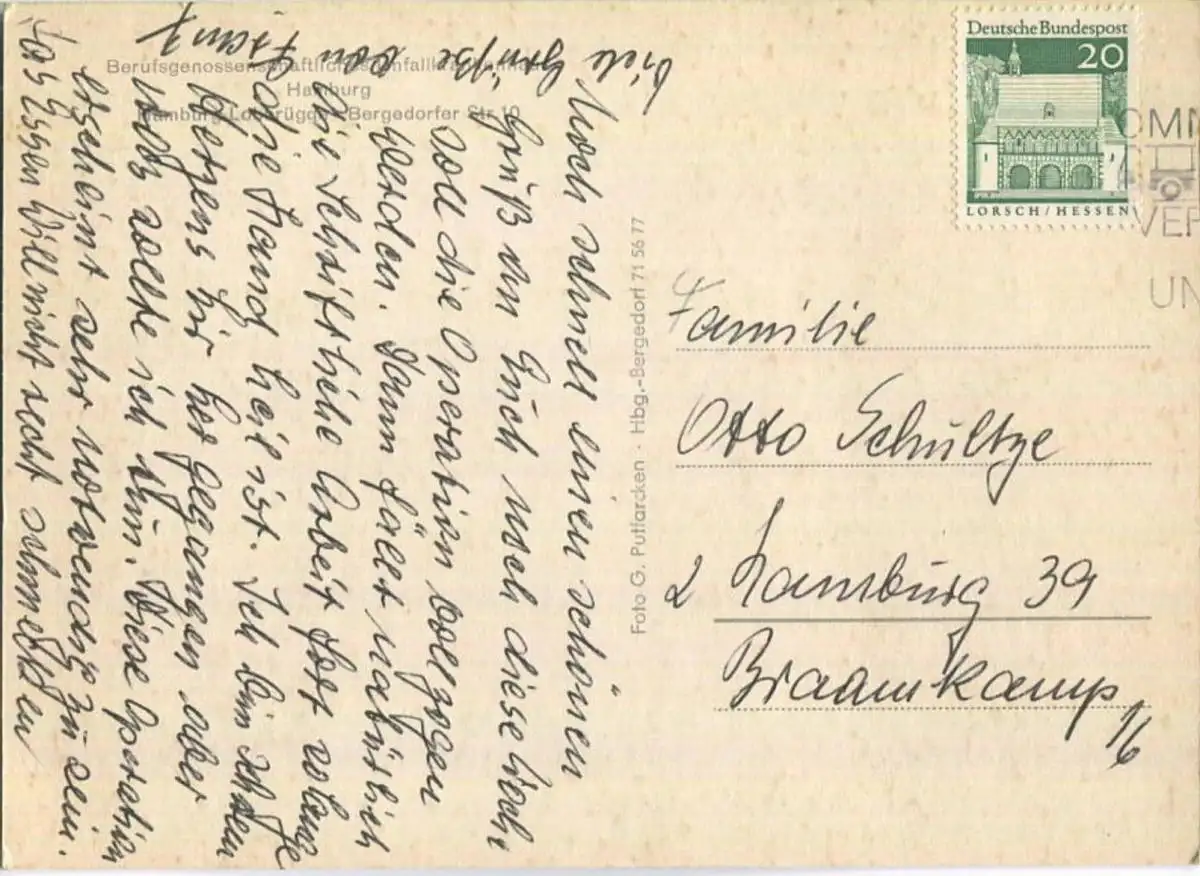 Berufsgenossenschaftliches Unfallkrankenhaus
Hamburg
Hamburg Lohbrügge, Bergedorfer Str. 10
Noch schnell einen schönen
Gruß an Euch noch diese Woche
soll die Operation vollzogen
werden. Dann fällt natürlich
die schriftliche Arbeit fort solange
die Hand heil ist. Ich bin
hergegangen aber
was sollte ich tun. Diese Operation
scheint sehr notwendig zu sein.
das Essen will nicht recht schmecken
Viele Grüße von
Foto G. Putfarcken · Hbg.-Bergedorf 71 56 77
Deutsche Bundespost
20
LORSCH/HESSEN
OMN
VER
UN
Familie
Otto Schultze
2 Hamburg 39
Braamkamp
16